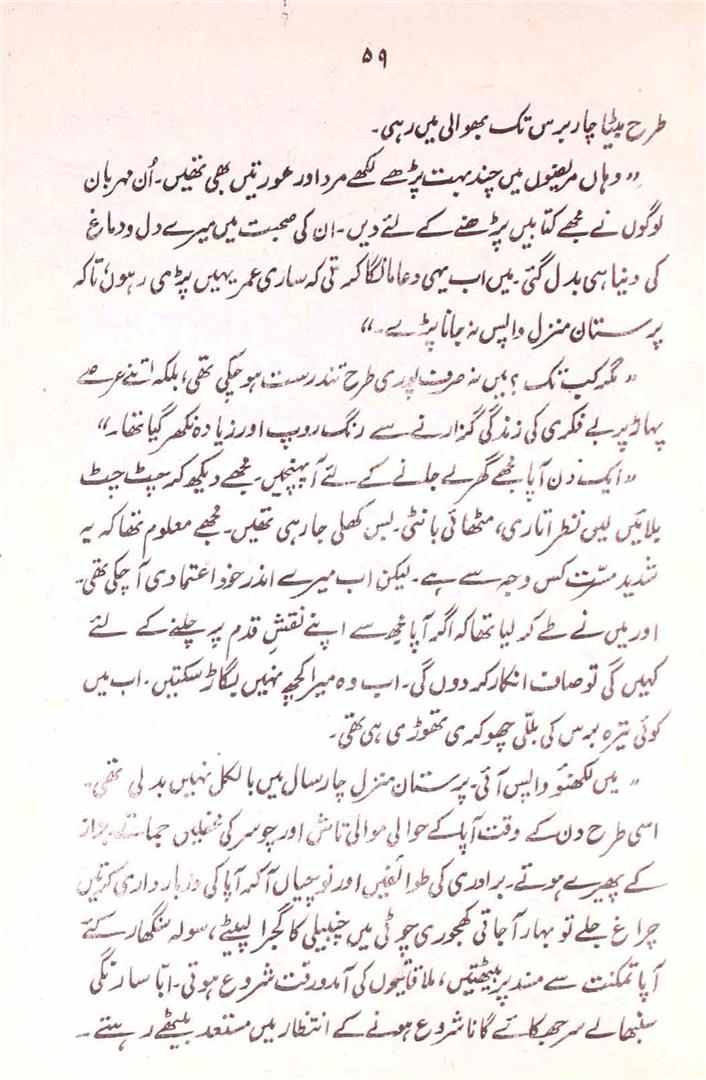 ۵۹
طرح بیٹیا چار برس تک بھوالی میں رہی۔
”وہاں مریضوں میں چند بہت پڑھے لکھے مرد اور عورتیں بھی تھیں۔ اُن مہربان
لوگوں نے مجھے کتابیں پڑھنے کے لئے دیں۔ ان کی صحبت میں میرے دل و دماغ
کی دنیا ہی بدل گئی۔ میں اب یہی دعا مانگا کرتی کہ ساری عمر یہیں پڑی رہوں، تاکہ
پرستان منزل واپس نہ جانا پڑے۔“
”مگر کب تک؟ میں نہ صرف پوری طرح تندرست ہو چکی تھی، بلکہ اتنے عرصے
پہاڑ پر بے فکری کی زندگی گزارنے سے رنگ روپ اور زیادہ نکھر گیا تھا۔“
”ایک دن آپا مجھے گھر لے جانے کے لئے آ پہنچیں۔ مجھے دیکھ کر چٹ چٹ
بلائیں لیں نظر اتاری، مٹھائی بانٹی۔ بس کھلی جا رہی تھیں۔ مجھے معلوم تھا کہ یہ
شدید مسرّت کس وجہ سے ہے۔ لیکن اب میرے اندر خود اعتمادی آ چکی تھی۔
اور میں نے طے کر لیا تھا کہ اگر آپا مجھ سے اپنے نقشِ قدم پر چلنے کے لئے
کہیں گی تو صاف انکار کر دوں گی۔ اب وہ میرا کچھ نہیں بگاڑ سکتیں۔ اب میں
کوئی تیرہ برس کی بلّی چھوکری تھوڑی ہی تھی۔
”میں لکھنؤ واپس آئی۔ پرستان منزل چار سال میں بالکل نہیں بدلی تھی۔
اسی طرح دن کے وقت آپا کے حوالی موالی تاش اور چوسر کی محفلیں جماتے۔ بزاز
کے پھیرے ہوتے۔ برادری کی طوائفیں اور نوچیاں آ کہ آپا کی دربارداری کرتیں
چراغ جلے تو بہار آ جاتی کھجوری چوٹی میں چنبیلی کا گجرا لپیٹے، سولہ سنگھار کئے
آپا تمکنت سے مسند پر بیٹھتیں، ملاقاتیوں کی آمدورفت شروع ہوتی۔ ابّا سارنگی
سنبھالے سر جھکائے گانا شروع ہونے کے انتظار میں مستعد بیٹھے رہتے۔